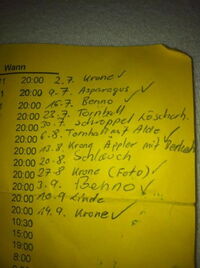 Wann
20:00 2.7. Krone ✓
20:00 9.7. Asparagus ✓
20:00 16.7. Benno ✓
20:00 23.7. Tornhall
20:00 30.7. Schroppel Köscherh.
20:00 6.8. Tornhalle auf Akte ✓
20:00 13.8 Krong Appler mit
20:00 20.8. Schlauch
20:00 27.8 Krone (Foto) ✓
20:00 3.9. Behno ✓
20:00 10.9 Linde
20:00 14.9. Krone ✓
10:30
15:00
19:00
8:00